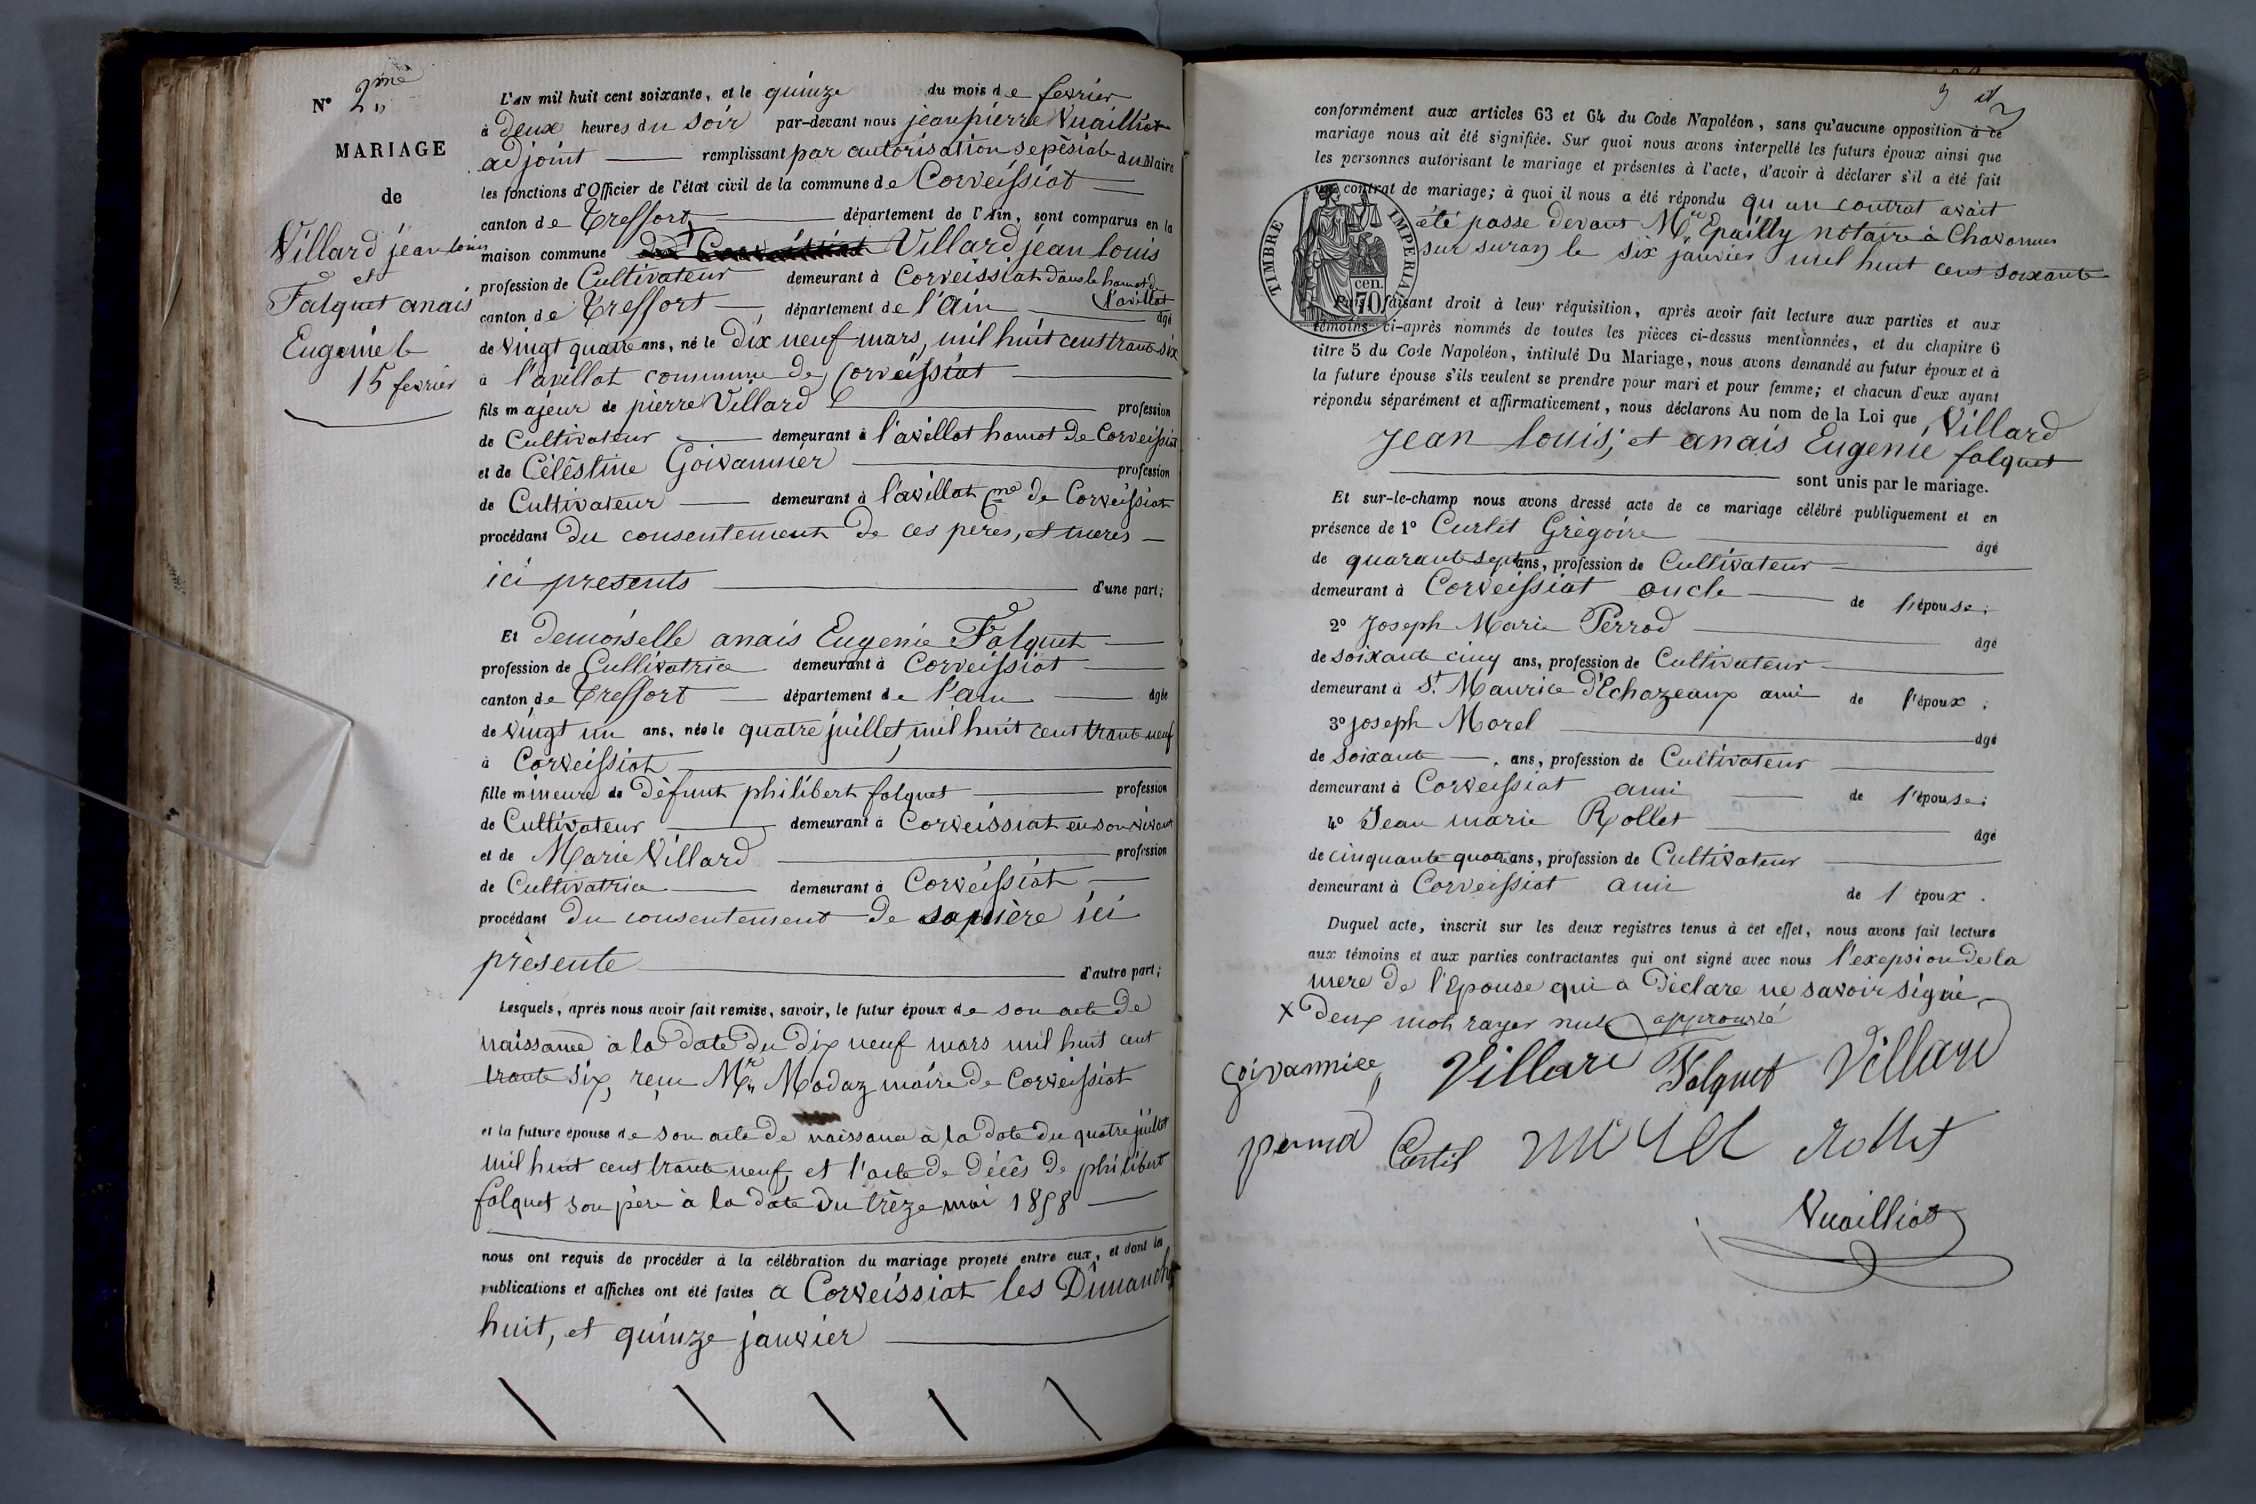 N° 2me
MARIAGE
de
Villard jean louis
et
Falquet anais
Eugenie le
15 fevrier
L'AN mil huit cent soixante, et le quinze du mois de fevrier
à Deux heures du soir par-devant nous jean pierre Vuailliat
adjoint remplissant par autorisation sepésiale du Maire
les fonctions d'Officier de l'état civil de la commune de Corveissiat
canton de Treffort département de l'Ain, sont comparus en la
maison commune Villard jean louis
profession de Cultivateur demeurant à Corveissiat dans le hamot de
l'avillat
canton de Treffort département de l'Ain âgé
de vingt quatre ans, né le dix neuf mars, mil huit cent trante six
à l'avillat commune de Corveissiat
fils majeur de pierre Villard profession
de Cultivateur demeurant à l'avillat hamot de Corveissiat
et de Célêstine Goivannier profession
de Cultivateur demeurant à l'avillat Cne de Corveissiat
procédant du consentement de ces peres, et meres
ici presents d'une part;
Et demoiselle anais Eugenie Falquet
profession de Cultivatrice demeurant à Corveissiat
canton de Treffort département de l'ain âgée
de vingt un ans, née le quatre juillet, mil huit cent trante neuf
à Corveissiat
fille mineure de Défunt philibert falquet profession
de Cultivateur demeurant à Corveissiat en son vivant
et de Marie Villard profession
de Cultivatrice demeurant à Corveissiat
procédant du consentement de sa mère ici
présente d'autre part;
Lesquels, après nous avoir fait remise, savoir, le futur époux de son acte de
naissance à la date du dix neuf mars mil huit cent
trante six, reçu Mr Modaz maire de Corveissiat
et la future épouse de son acte de naissance à la date du quatre juillet
mil huit cent trante neuf, et l'acte de décês de philibert
falquet son père à la date du trèze mai 1858
nous ont requis de procéder à la célébration du mariage projeté entre eux, et dont les
publications et affiches ont été faites a Corveissiat les Dimanche
huit, et quinze janvier
conformément aux articles 63 et 64 du Code Napoléon, sans qu'aucune opposition à ce
mariage nous ait été signifiée. Sur quoi nous avons interpellé les futurs époux ainsi que
les personnes autorisant le mariage et présentes à l'acte, d'avoir à déclarer s'il a été fait
un contrat de mariage; à quoi il nous a été répondu qu'un contrat avait
été passe devant Mre Epailly notaire à Chavannes
sur suran le six janvier mil huit cent soixante
TIMBRE IMPERIAL
70 cen.
Puis, faisant droit à leur réquisition, après avoir fait lecture aux parties et aux
témoins ci-après nommés de toutes les pièces ci-dessus mentionnées, et du chapitre 6
titre 5 du Code Napoléon, intitulé Du Mariage, nous avons demandé au futur époux et à
la future épouse s'ils veulent se prendre pour mari et pour femme; et chacun d'eux ayant
répondu séparément et affirmativement, nous déclarons Au nom de la Loi que Villard
Jean louis, et anais Eugenie falquet
sont unis par le mariage.
Et sur-le-champ nous avons dressé acte de ce mariage célébré publiquement et en
présence de 1° Curtit Grègoire âgé
de quarante sept ans, profession de Cultivateur
demeurant à Corveissiat oncle de l'épouse;
2° Joseph Marie Perrod âgé
de soixante cinq ans, profession de Cultivateur
demeurant à St Maurice D'Echazeaux ami de l'époux;
3° Joseph Morel âgé
de soixante ans, profession de Cultivateur
demeurant à Corveissiat ami de l'épouse;
4° Jean marie Rollet âgé
de cinquante quatre ans, profession de Cultivateur
demeurant à Corveissiat ami de l époux.
Duquel acte, inscrit sur les deux registres tenus à cet effet, nous avons fait lecture
aux témoins et aux parties contractantes qui ont signé avec nous l'exepsion de la
mere de l'Epouse qui a Déclare ne savoir signé
X Deux mots rayer nuls approuvé
goivannier Villard Falquet Villard
perrod Curtit morel Rollet
Vuailliat